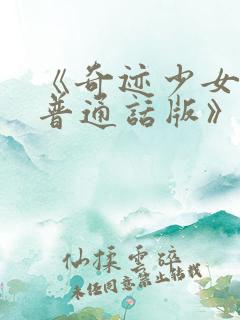 《奇迹少女
普通話版》
仙揉雲碎
未经同意禁止转载